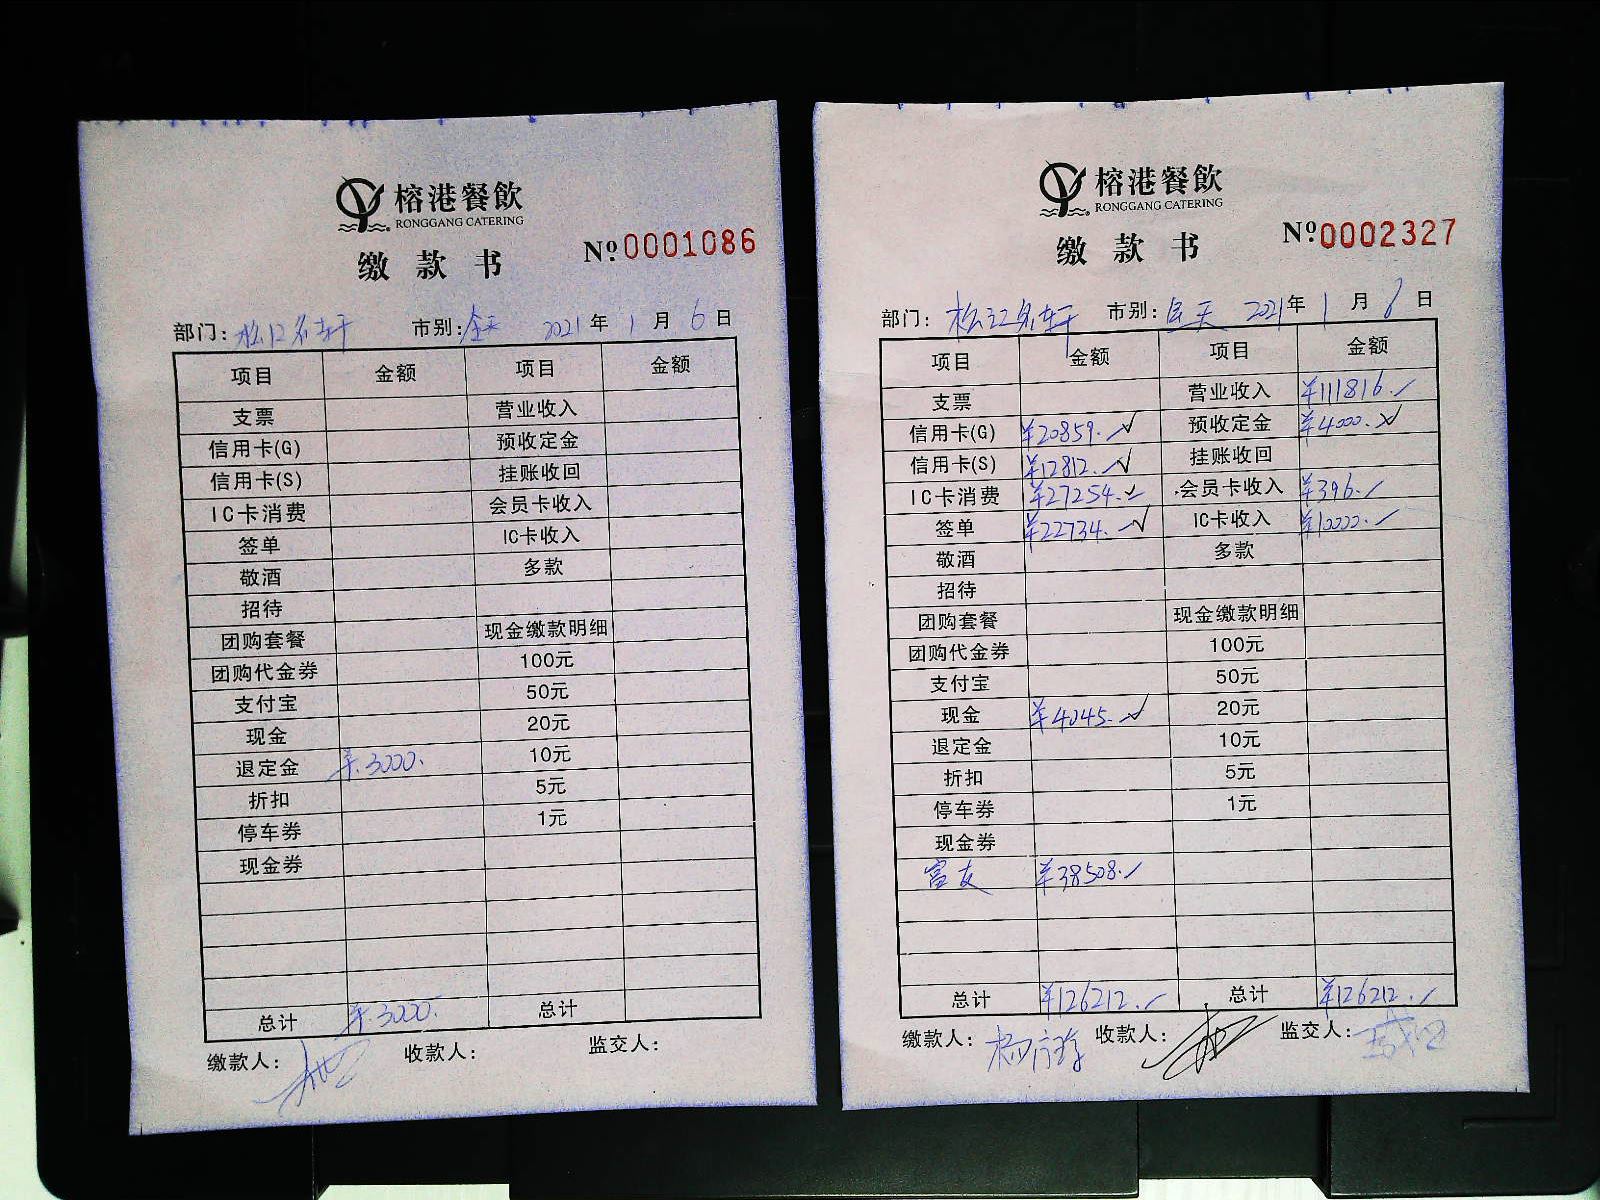 榕港餐飲
RONGGANG CATERING
缴款书
№0001086
部门: 松江名轩 市别: 全天 2021年1月6日
项目 金额 项目 金额
支票 营业收入
信用卡(G) 预收定金
信用卡(S) 挂账收回
IC卡消费 会员卡收入
签单 IC卡收入
敬酒 多款
招待
团购套餐 现金缴款明细
团购代金券 100元
支付宝 50元
现金 20元
退定金 ¥3000. 10元
折扣 5元
停车券 1元
现金券
总计 ¥3000. 总计
缴款人: 收款人: 监交人:
榕港餐飲
RONGGANG CATERING
缴款书
№0002327
部门: 松江名轩 市别: 全天 2021年1月6日
项目 金额 项目 金额
支票 营业收入 ¥111816.
信用卡(G) ¥20859. 预收定金 ¥4000.
信用卡(S) ¥12812. 挂账收回
IC卡消费 ¥27254. 会员卡收入 ¥396.
签单 ¥22734. IC卡收入 ¥10000.
敬酒 多款
招待
团购套餐 现金缴款明细
团购代金券 100元
支付宝 50元
现金 ¥4045. 20元
退定金 10元
折扣 5元
停车券 1元
现金券
富友 ¥38508.
总计 ¥126212. 总计 ¥126212.
缴款人: 收款人: 监交人: